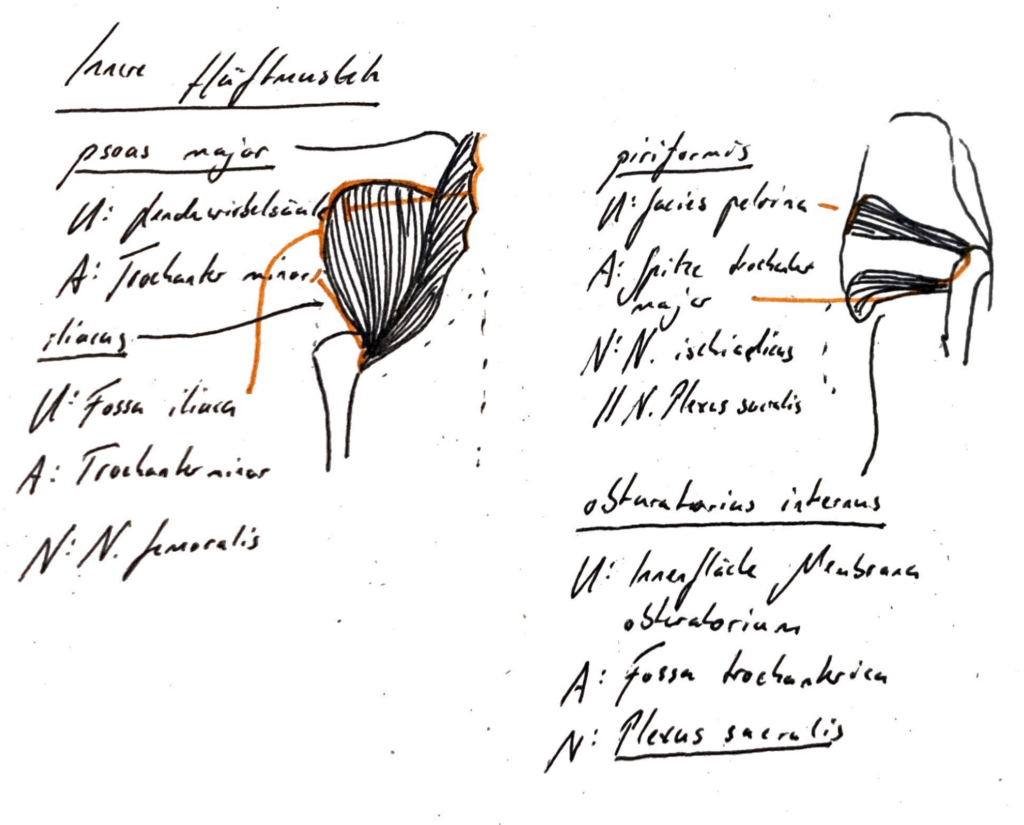 Innere Hüftmuskeln
psoas major
U: Lendenwirbelsäule
A: Trochanter minor
iliacus
U: Fossa iliaca
A: Trochanter minor
N: N. femoralis
piriformis
U: facies pelvina
A: Spitze trochanter
major
N: N. ischiadicus
N. Plexus sacralis
obturatorius internus
U: Innenfläche Membrana
obturatorium
A: Fossa trochanterica
N: Plexus sacralis